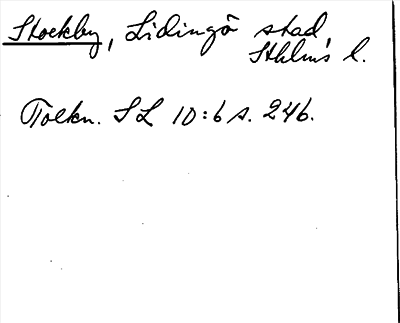 Stockby, Lidingö stad,
Sthlms l.
Tolkn. SL 10:6 s. 246.